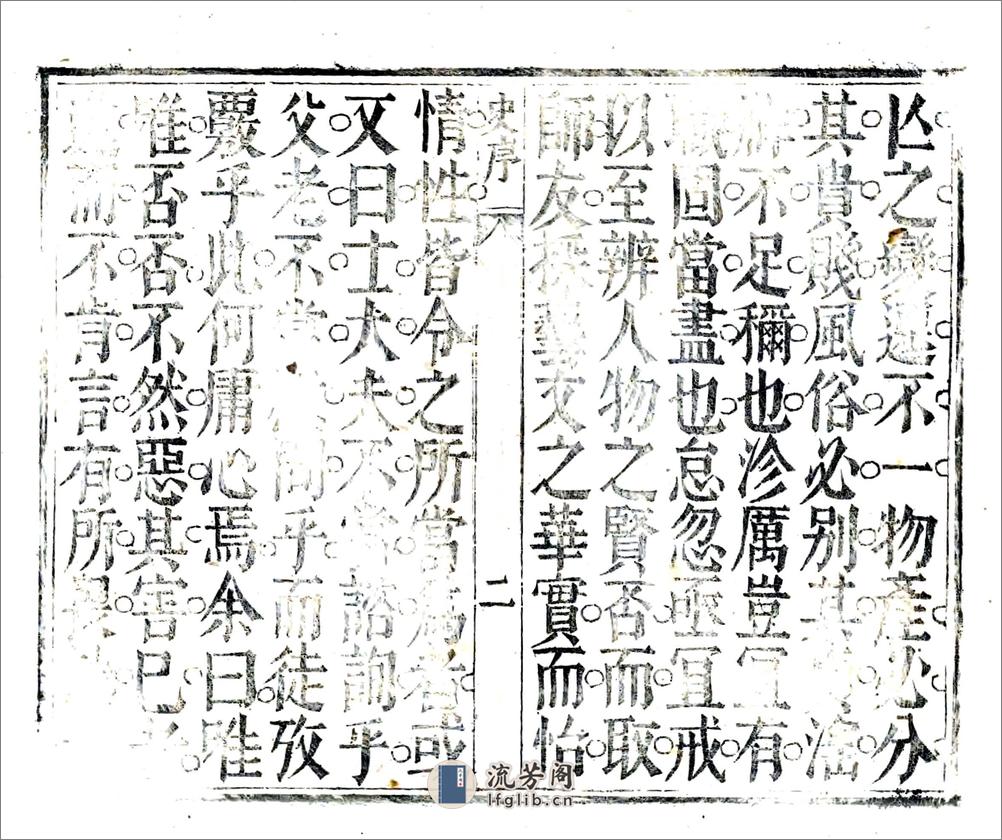 亾之變遷不一物產必分
其貴賤風俗必別其淫
不足稱也沴厲豈宜有
職固當盡也怠忽亟宜戒
以至辨人物之賢否而取
師友採藝文之華實而怡
史序
二
情性皆令之所當為者或
又曰士大夫不嘗諮詢乎
父老不嘗問乎而徒攷
覈乎此何庸心焉余曰唯
唯否否不然惡其害已者
而不肯言有所
流芳阁
lfglib.cn